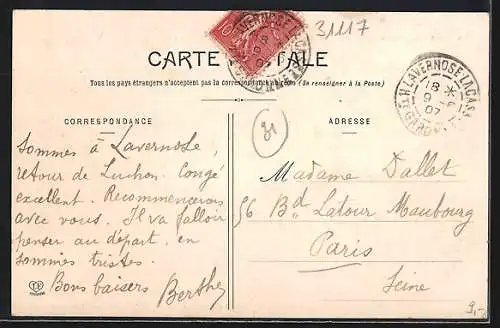 31117
CARTE POSTALE
Tous les pays étrangers n'acceptent pas la correspondance au (Se renseigner à la Poste)
CORRESPONDANCE
ADRESSE
LAVERNOSE-LACASSE
Hte GARONNE
18
9
07
31
Sommes à Lavernose,
retour de Luchon. Congé
excellent. Recommencerons
avec vous. Il va falloir
penser au départ. en
sommes tristes.
Bons baisers Berthe
Madame Dallet
56 Bd Latour Maubourg
Paris
Seine
9,-